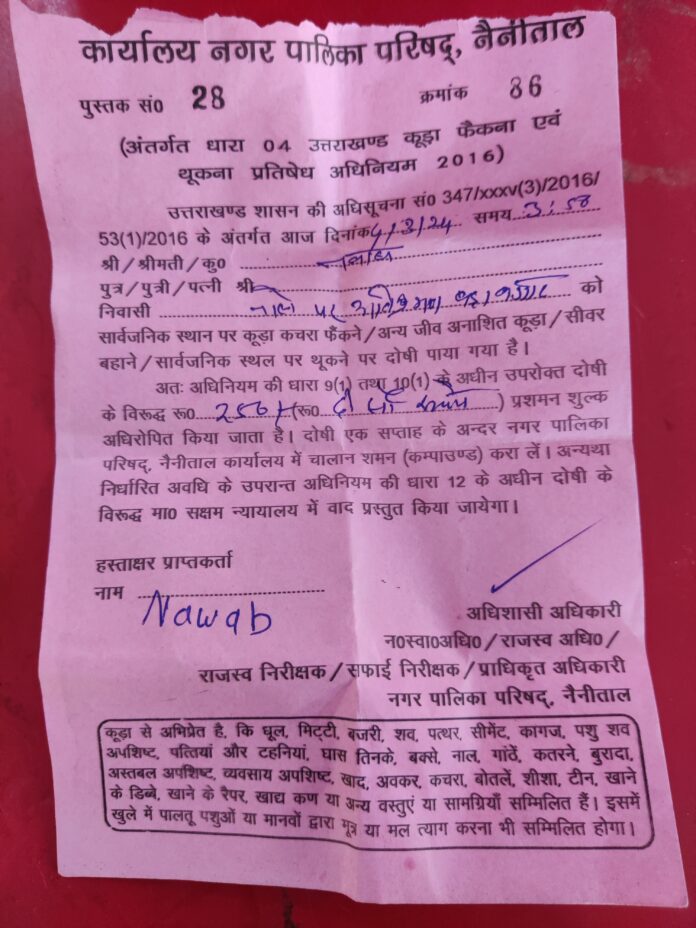 कार्यालय नगर पालिका परिषद्, नैनीताल
पुस्तक सं0 28 क्रमांक 86
(अंतर्गत धारा 04 उत्तराखण्ड कूड़ा फैंकना एवं
थूकना प्रतिषेध अधिनियम 2016)
उत्तराखण्ड शासन की अधिसूचना सं0 347/xxxv(3)/2016/
53(1)/2016 के अंतर्गत आज दिनांक 4/3/24 समय 3:58
श्री/श्रीमती/कु0
पुत्र/पुत्री/पत्नी श्री
निवासी नाले पर को
सार्वजनिक स्थान पर कूड़ा कचरा फैंकने/अन्य जीव अनाशित कूड़ा/सीवर
बहाने/सार्वजनिक स्थल पर थूकने पर दोषी पाया गया है।
अतः अधिनियम की धारा 9(1) तथा 10(1) के अधीन उपरोक्त दोषी
के विरूद्ध रू0 (रू0 दो सौ) प्रशमन शुल्क
अधिरोपित किया जाता है। दोषी एक सप्ताह के अन्दर नगर पालिका
परिषद्, नैनीताल कार्यालय में चालान शमन (कम्पाउण्ड) करा लें। अन्यथा
निर्धारित अवधि के उपरान्त अधिनियम की धारा 12 के अधीन दोषी के
विरूद्ध मा0 सक्षम न्यायालय में वाद प्रस्तुत किया जायेगा।
हस्ताक्षर प्राप्तकर्ता
नाम
Nawab
अधिशासी अधिकारी
न0स्वा0अधि0/राजस्व अधि0/
राजस्व निरीक्षक/सफाई निरीक्षक/प्राधिकृत अधिकारी
नगर पालिका परिषद्, नैनीताल
कूड़ा से अभिप्रेत है, कि धूल, मिट्टी, बजरी, शव, पत्थर, सीमेंट, कागज, पशु शव
अपशिष्ट, पत्तियां और टहनियां, घास तिनके, बक्से, नाल, गांठें, कतरने, बुरादा,
अस्तबल अपशिष्ट, व्यवसाय अपशिष्ट, खाद, अवकर, कचरा, बोतलें, शीशा, टीन, खाने
के डिब्बे, खाने के रैपर, खाद्य कण या अन्य वस्तुएं या सामग्रियाँ सम्मिलित हैं। इसमें
खुले में पालतू पशुओं या मानवों द्वारा मूत्र या मल त्याग करना भी सम्मिलित होगा।